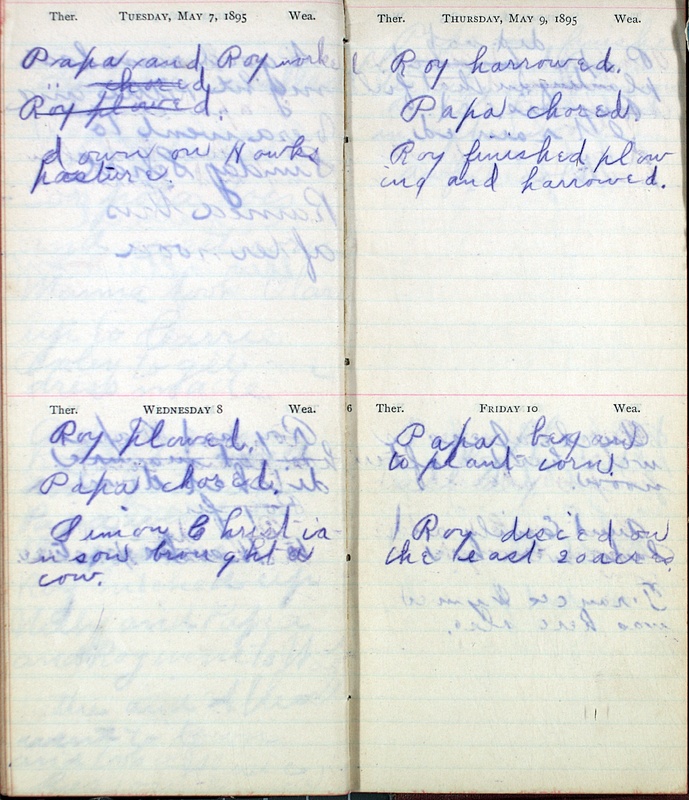 Ther. Tuesday, May 7, 1895 Wea.
Papa and Roy worke
" chored
Roy plowed.
down on Hawks
pasture.
Ther. Wednesday 8 Wea.
Roy plowed.
Papa chored.
Simon Christia
n son brought a
cow.
Ther. Thursday, May 9, 1895 Wea.
Roy harrowed.
Papa chored.
Roy finished plow
ing and harrowed.
6 Ther. Friday 10 Wea.
Papa began
to plant corn.
Roy disced on
the east 20 acres